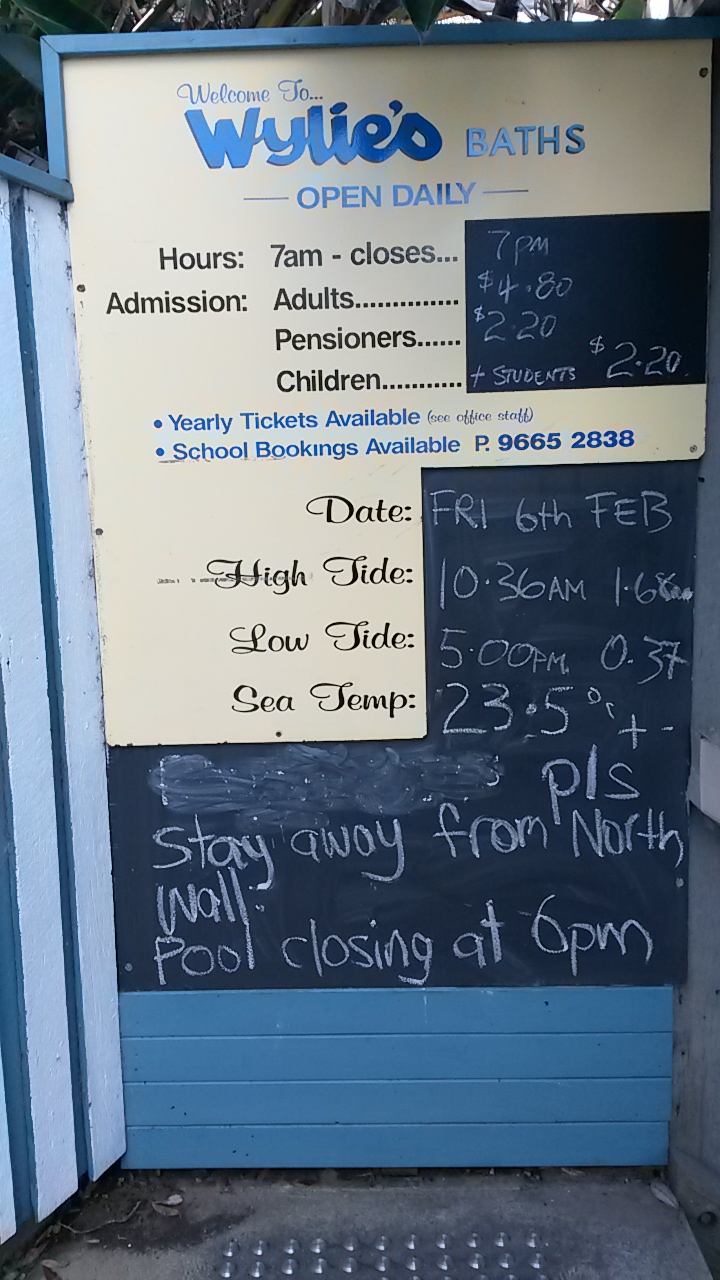 Welcome To...
Wylie's BATHS
OPEN DAILY
Hours: 7am - closes... 7pm
Admission: Adults.............. $4.80
Pensioners...... $2.20
Children........... + STUDENTS $2.20
• Yearly Tickets Available (see office staff)
• School Bookings Available P. 9665 2838
Date: FRI 6th FEB
High Tide: 10.36AM
Low Tide: 5.00PM 0.37
Sea Temp: 23.5°c + -
pls
Stay away from North
Wall.
Pool closing at 6pm